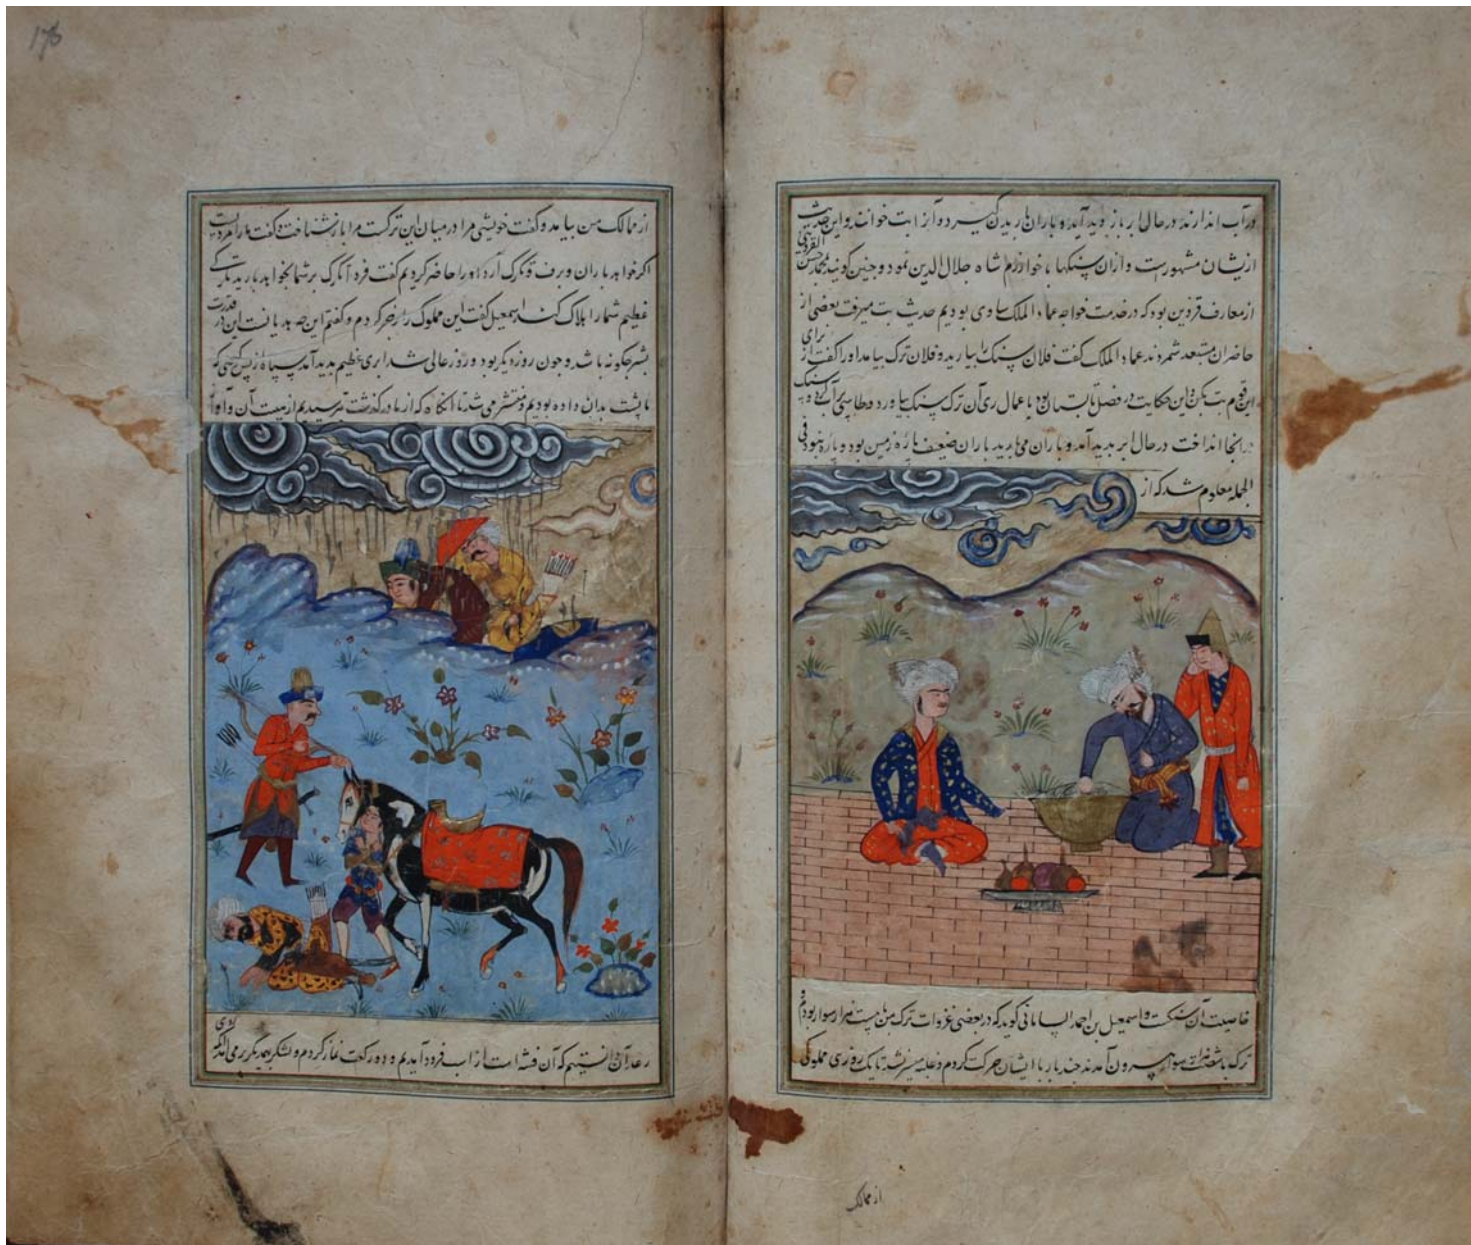 در آب اندازند در حال ابر باز پدید آید و باران باریدن گیرد و آنرا یت خوانند و این حدیث
ازیشان مشهورست و ازان سنکها با خوارزم شاه جلال الدین نمود و جنین کویند محمد بن حسن القزوینی
از معارف قزوین بود که در خدمت خواجه عماد الملک ساوی بودیم حدیث یت میرفت بعضی از
حاضران مستبعد شمردند عماد الملک کفت فلان سنک را بیارید و فلان ترک بیامد اورا کفت از برای
این قوم یت بکن و این حکایت در فصل تابستان بود باعمال ری آن ترک سنک بیاورد و طاسی پر آب کرد و سنک
در انجا انداخت در حال ابر بدید آمد و باران می بارید باران ضعیف پاره زمین بود و پاره نبود فی
الجمله معلوم شد که از
خاصیت آن سنکست و اسمعیل بن احمد السامانی کوید که در بعضی غزوات ترک من با بیست هزار سوار بودم و
ترک با شصت هزار سوار بیرون آمدند چند بار با ایشان حرکت کردم و غلبه میسر نشد تا یک روزی مملوکی
از ممالک
176
از ممالک من بیامد و کفت خویشی مرا در میان این ترکست مرا باز شناخت و کفت با ما مردیست
اکر خواهد باران و برف و تکرک آرد اورا حاضر کردیم کفت فردا تکرک بر شما بخواهد بارید تکرکی
عظیم شمارا هلاک کند اسمعیل کفت این مملوک را زجر کردم و کفتم این چه هذیانست این در قدرت
بشر جکونه باشد و جون روز دیکر بود و روز عالی شد ابری عظیم بدید آمد سیاه از پس کوهی که
ما پشت بدان داده بودیم و منتشر می شد تا آنکاه که از ما در کذشت ترسیدیم از هیبت آن و آواز
رعد آن دانستیم که آن فتنه است از اسب فرود آمدیم و دو رکعت نماز کردم و لشکر بیکدیکر بر می آمد